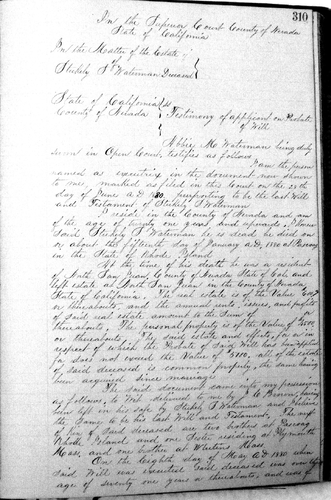 310
In the Superior Court County of Nevada
State of California
In the Matter of the Estate
of
Stukely S Waterman Deceased
State of California } ss
County of Nevada } Testimony of applicant on Probate
of Will
Abbie M. Waterman being duly
sworn in Open Court, testifies as follows
I am the person
named as executrix in the document now shown
to me, marked as filed in this Court on the 28th
day of June A.D. 1880, purporting to be the last Will
and Testament of Stukely S Waterman.
I reside in the County of Nevada and am
of the age of twenty one years and upwards, I knew
Said Stukely S Waterman he is dead, he died on
or about the fifteenth day of January A.D. 1880 at
in the State of Rhode Island.
At the time of his death he was a resident
of North San Juan, County of Nevada State of Cala and
left estate at North San Juan in the County of Nevada
State of California. The real estate is of the Value of
or thereabouts and the annual rents, issues, and profits
of said real estate amount to the Sum of
thereabouts. The personal property is of the Value of
or thereabouts, the said estate and effects, for or in
respect of which the Probate of said Will has been applied
for does not exceed the Value of $ all of the estate
of said deceased is common property, the same having
been acquired since marriage.
The said document came into my possession
as follows, to Wit: delivered to me by J. C. Brown, having
been left in his safe by Stukely S Waterman and I believe
the Same to be his last Will and Testament. The next
of kin of Said deceased are two brothers at
Rhode Island and one Sister residing at Plymouth
Mass, and one brother at Mass
On the Eighth day of May A.D. 1880 when
Said Will was executed Said deceased was over the
age of seventy one years or thereabouts, and was of